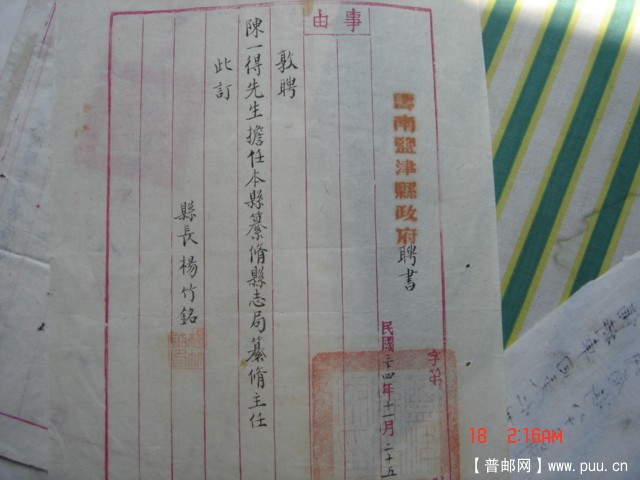 雲南鹽津縣政府聘書
字第
民國三四年十一月二十五
事由
敦聘
陳一得先生擔任本縣纂脩縣志局纂脩主任
此訂
縣長楊竹銘
18 2:16AM
【普邮网】www.puu.cn